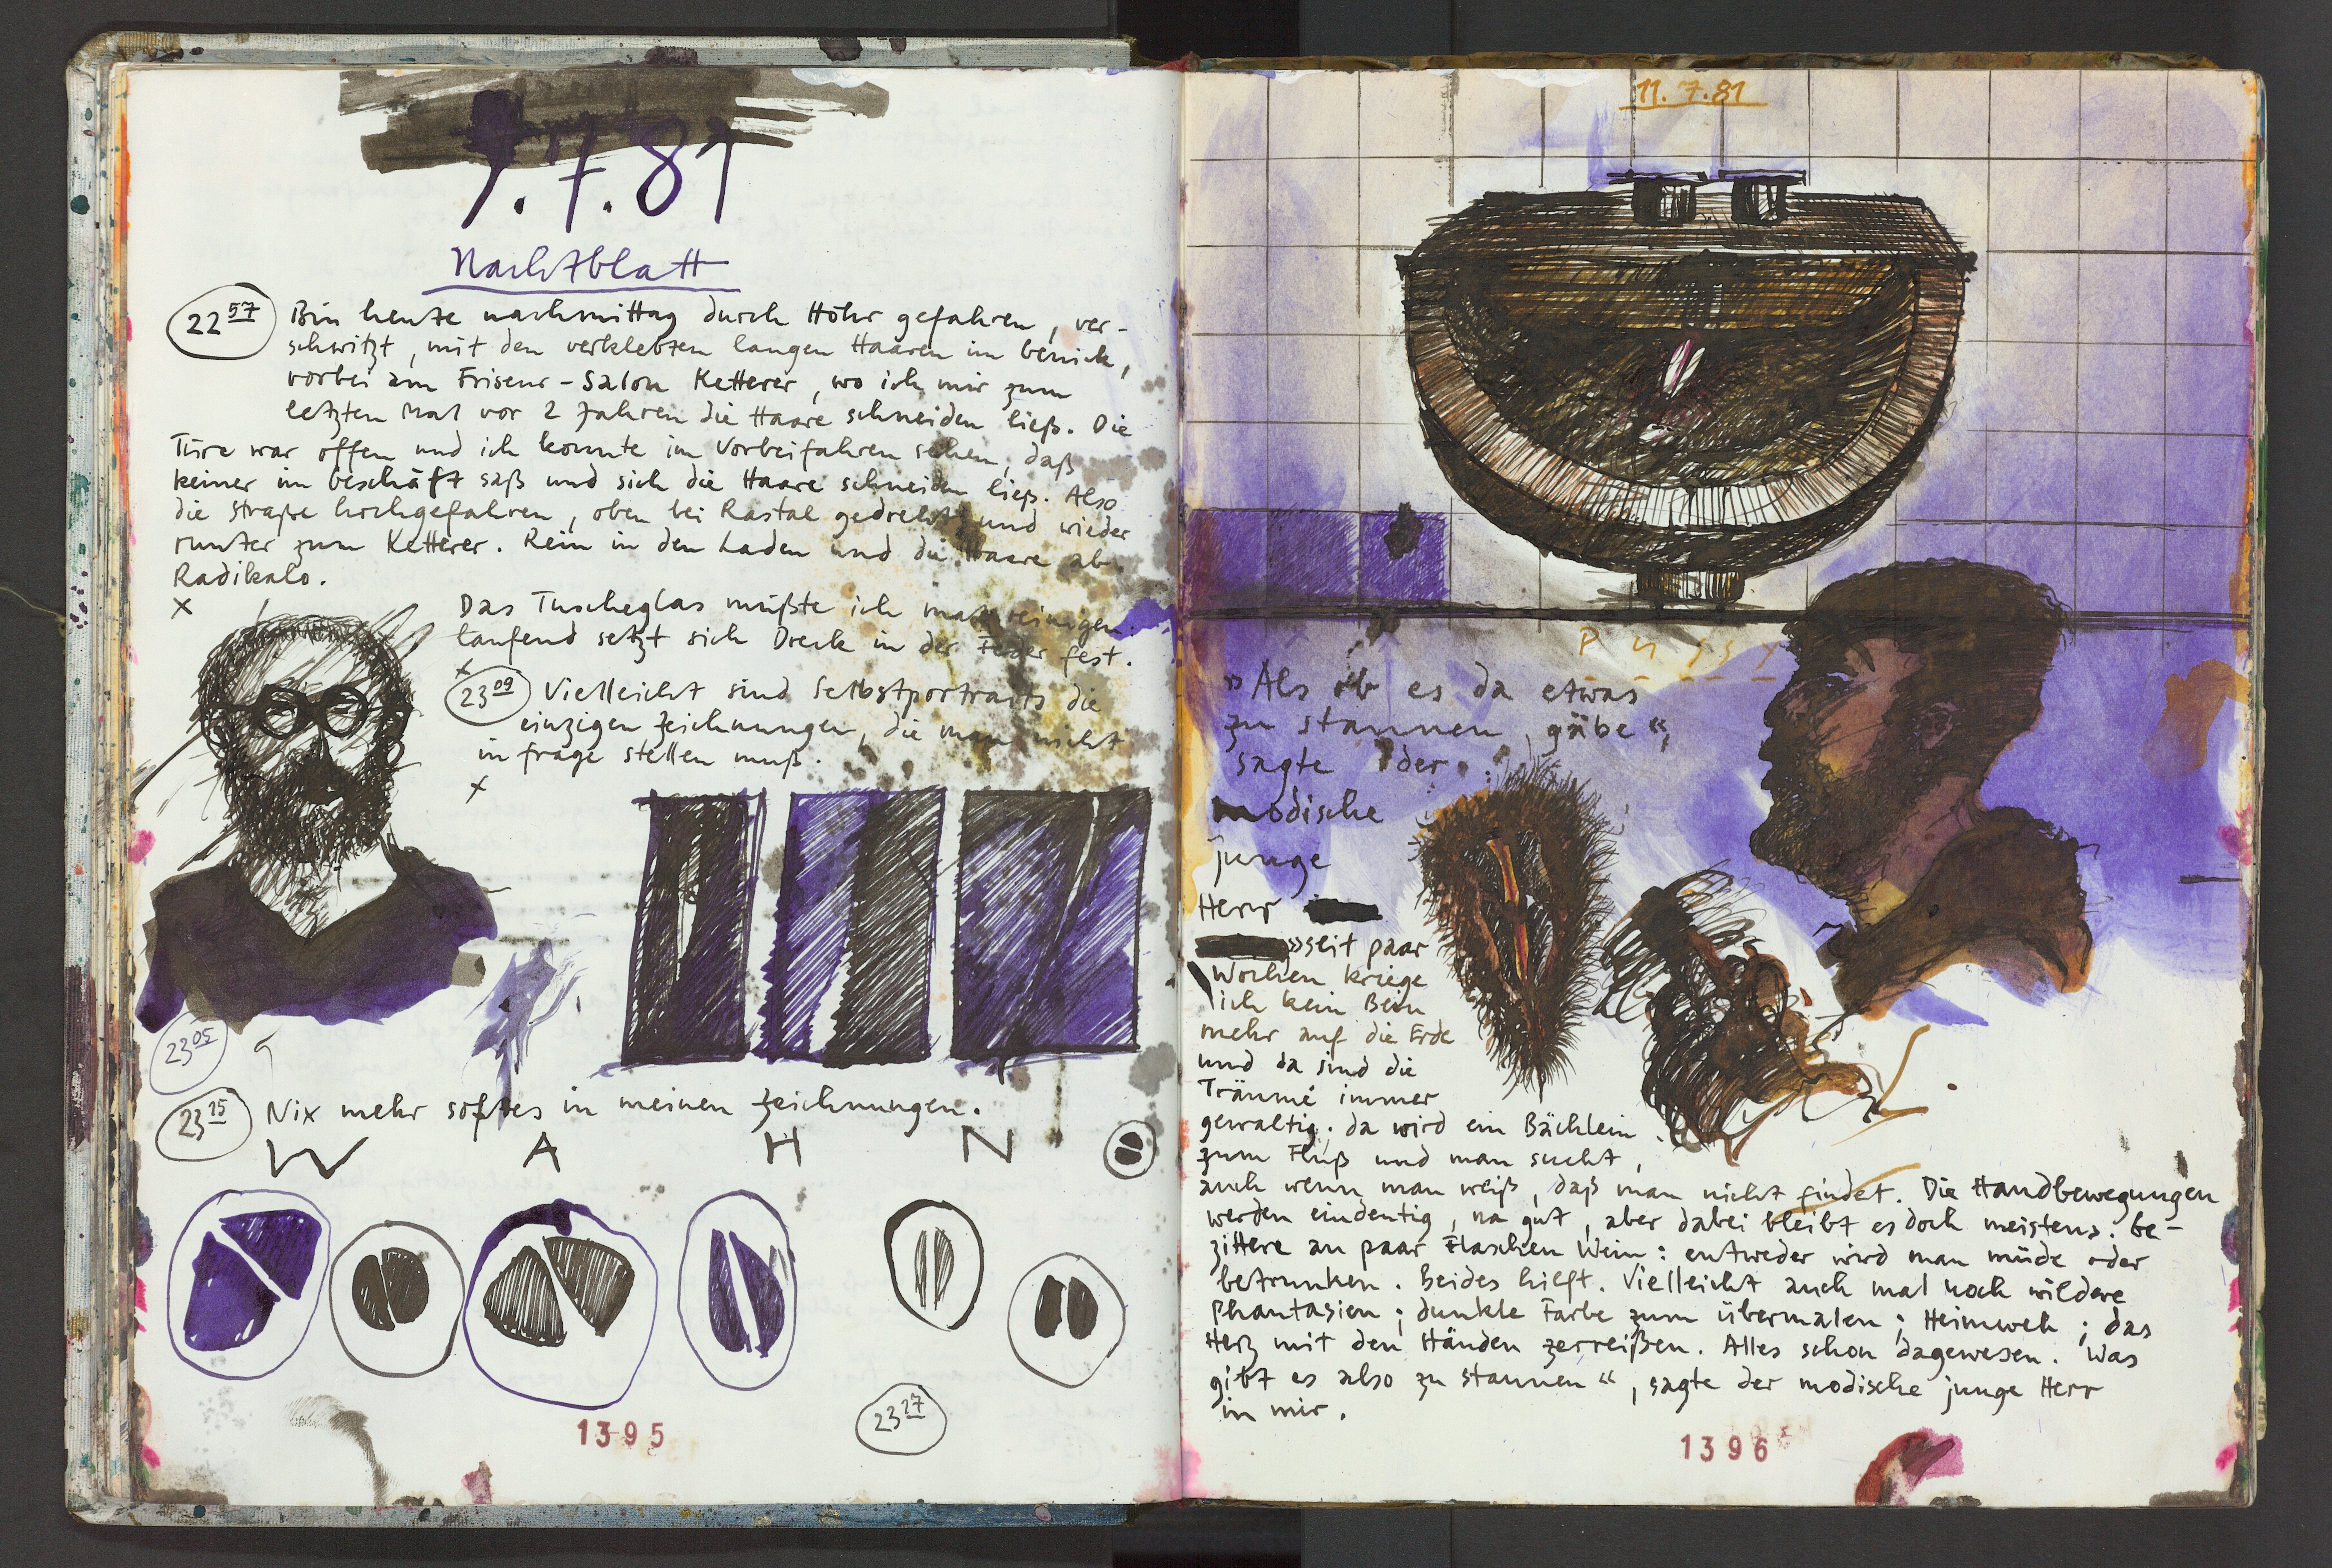 9.7.81
Nachtblatt
22 57 Bin heute nachmittag durch Höhr gefahren, ver-
schwitzt, mit den verklebten langen Haaren im Genick,
vorbei am Friseur-Salon Ketterer, wo ich mir zum
letzten Mal vor 2 Jahren die Haare schneiden ließ. Die
Türe war offen und ich konnte im Vorbeifahren sehen, daß
keiner im Geschäft saß und sich die Haare schneiden ließ. Also
die Straße hochgefahren, oben bei Rastal gedreht und wieder
runter zum Ketterer. Rein in den Laden und die Haare ab.
Radikalo.
x
Das Tuscheglas müßte ich mal reinigen:
laufend setzt sich Dreck in der Feder fest.
x
23 09 Vielleicht sind Selbstportraits die
einzigen Zeichnungen, die man nicht
in frage stellen muß.
x
23 05
23 25 Nix mehr softes in meinen Zeichnungen.
W A H N
23 27
1395
11.7.81
Pussy
»Als ob es da etwas
zu staunen gäbe«,
sagte der
modische
junge
Herr
»seit paar
Wochen kriege
ich kein Bein
mehr auf die Erde
und da sind die
Träume immer
gewaltig; da wird ein Bächlein
zum Fluß und man sucht,
auch wenn man weiß, daß man nicht findet. Die Handbewegungen
werden eindeutig, na gut, aber dabei bleibt es doch meistens. Be-
zittere an paar Flaschen Wein: entweder wird man müde oder
betrunken. Beides hilft. Vielleicht auch mal noch wildere
Phantasien; dunkle Farbe zum übermalen; Heimweh; das
Herz mit den Händen zerreißen. Alles schon dagewesen. Was
gibt es also zu staunen“, sagte der modische junge Herr
in mir.
1396